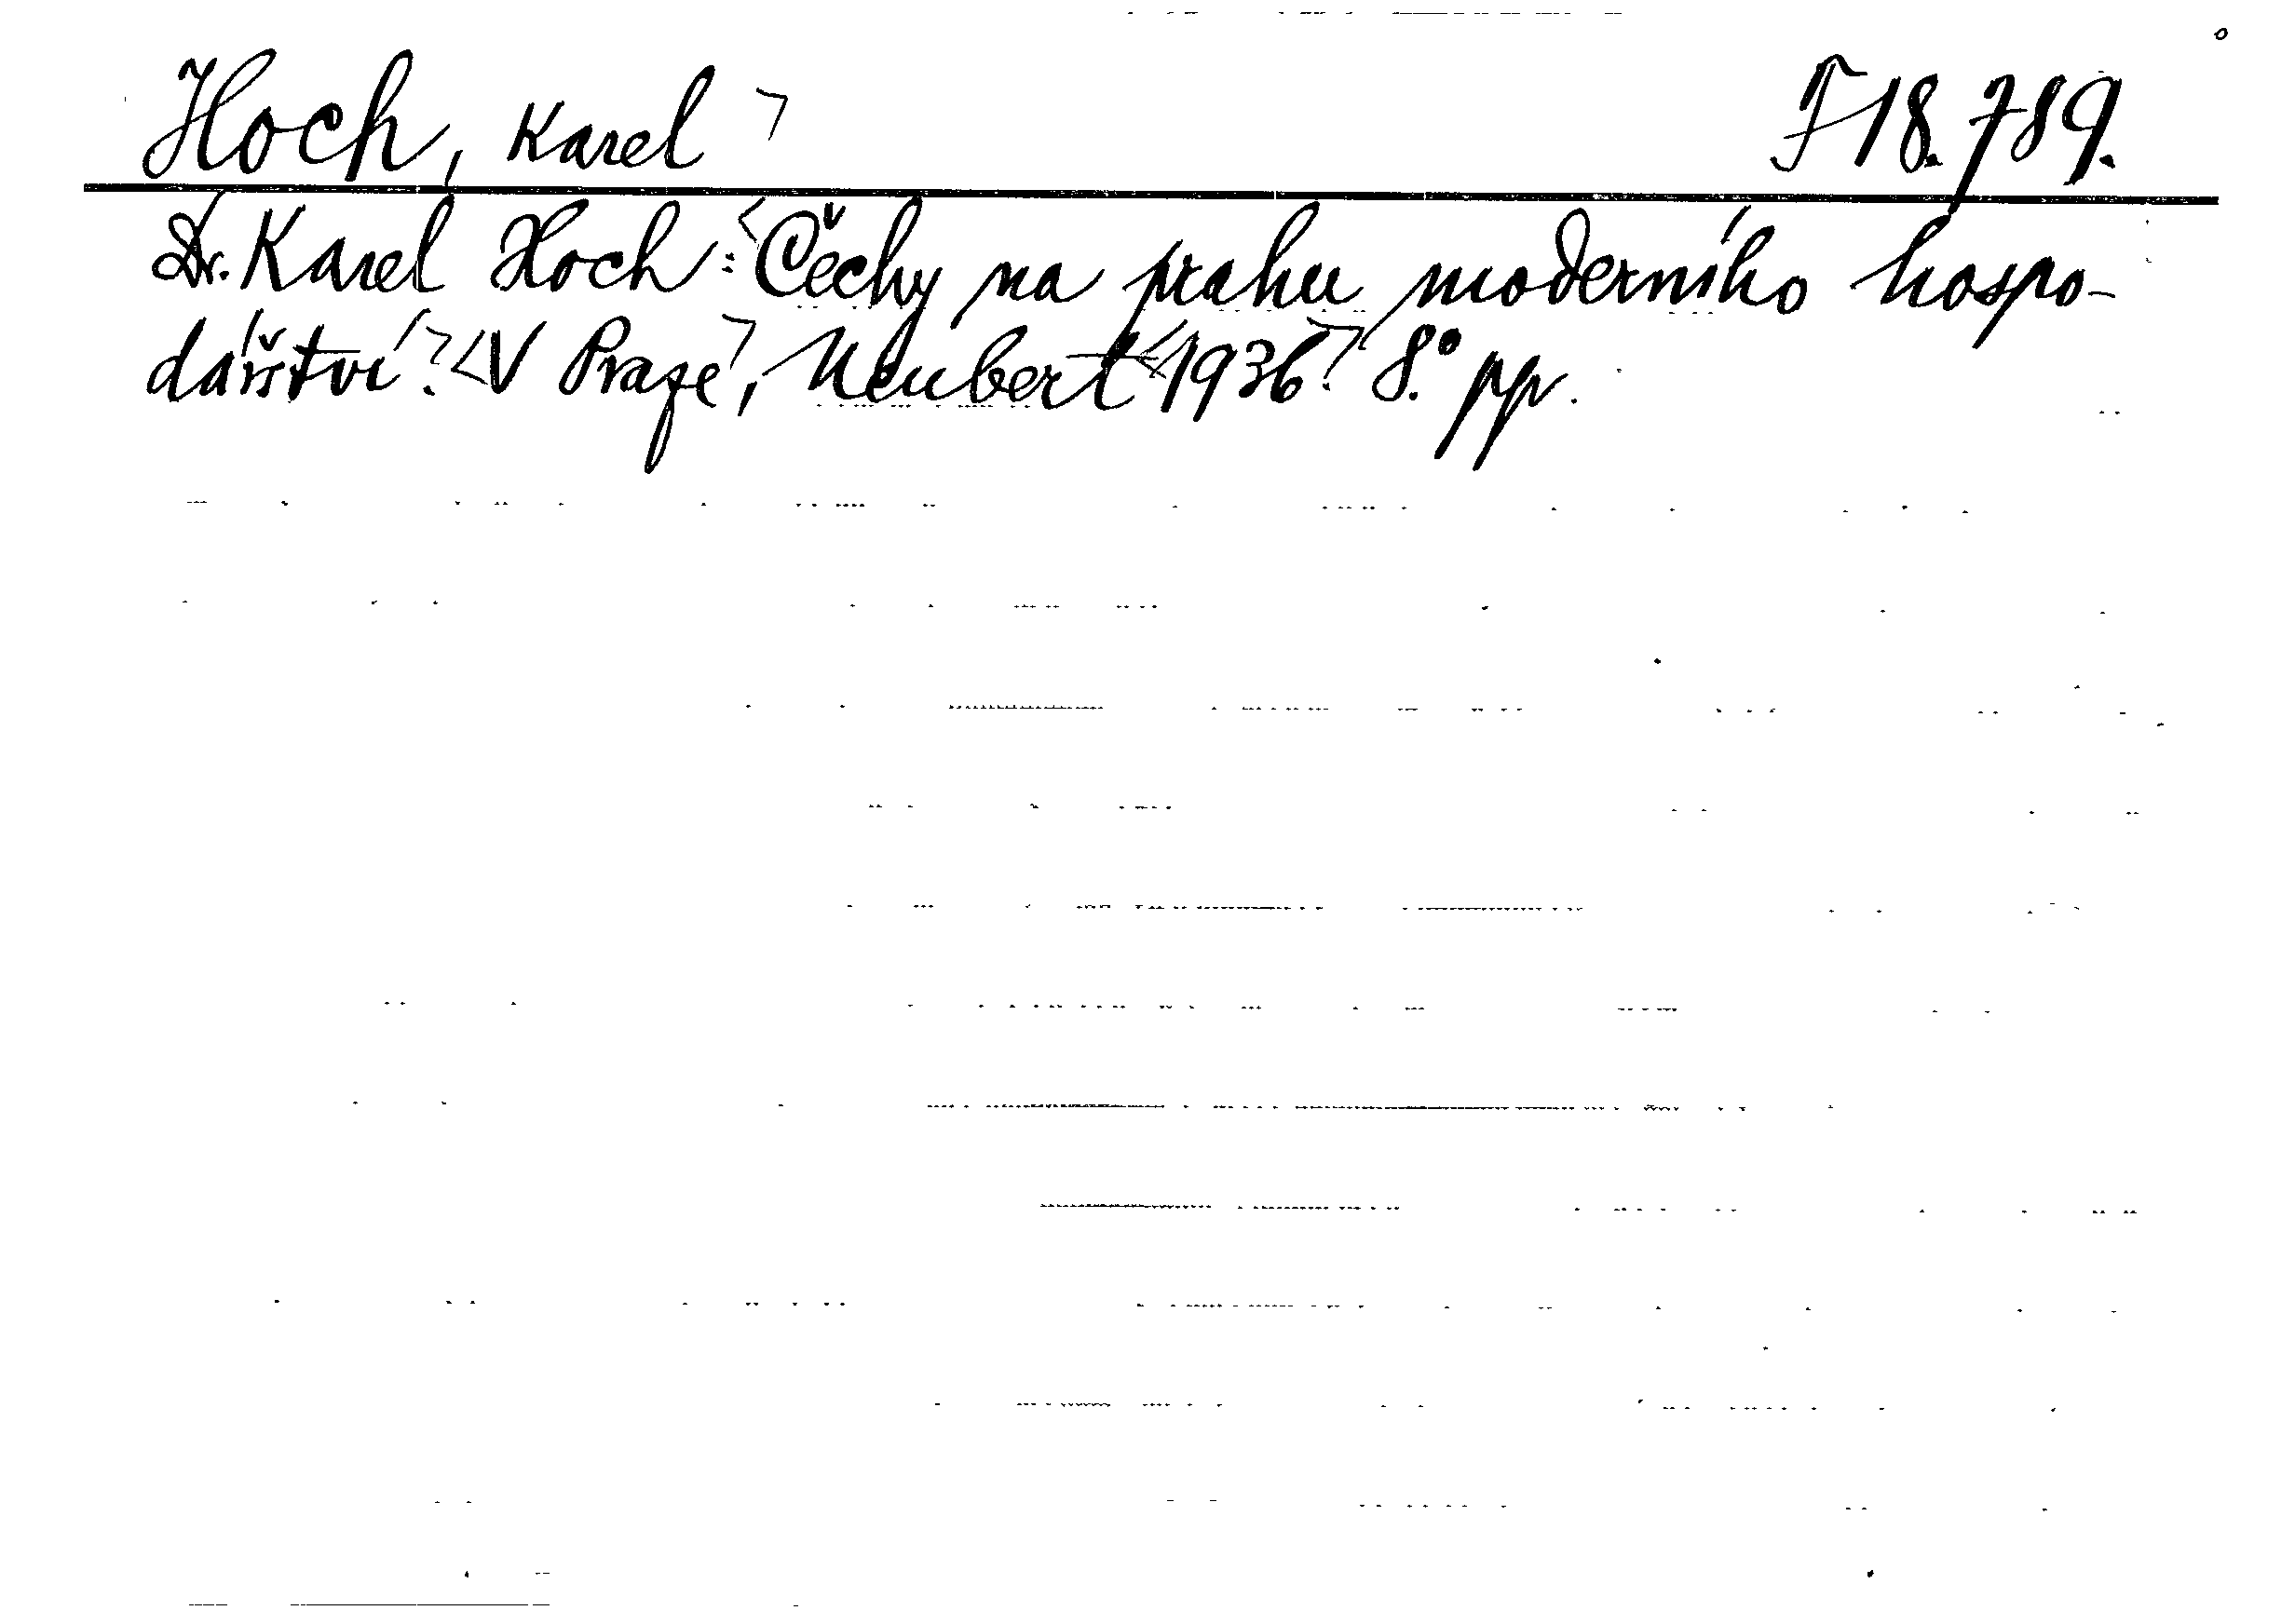 Hoch, Karel F 18.789.
Dr. Karel Hoch: Čechy na prahu moderního hospo-
dářství. V Praze, Neubert 1936. 8.° pp.